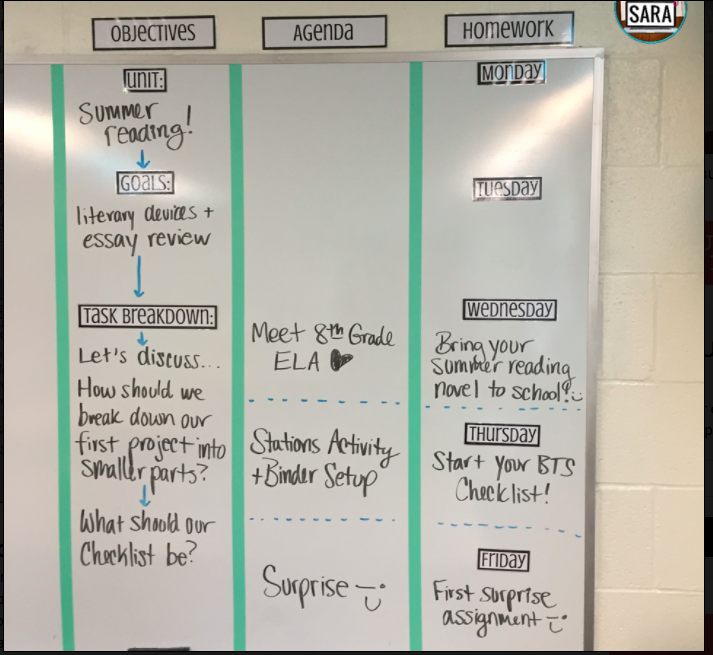 SARA
OBJECTIVES
AGENDA
HOMEWORK
UNIT:
Summer
reading!
GOALS:
literary devices +
essay review
TASK BREAKDOWN:
Let's discuss...
How should we
break down our
first project into
smaller parts?
What should our
Checklist be?
Meet 8th Grade
ELA
Stations Activity
+Binder Setup
Surprise
MONDAY
TUESDAY
WEDNESDAY
Bring your
summer reading
novel to school!
THURSDAY
Start your BTS
Checklist!
FRIDAY
First surprise
assignment